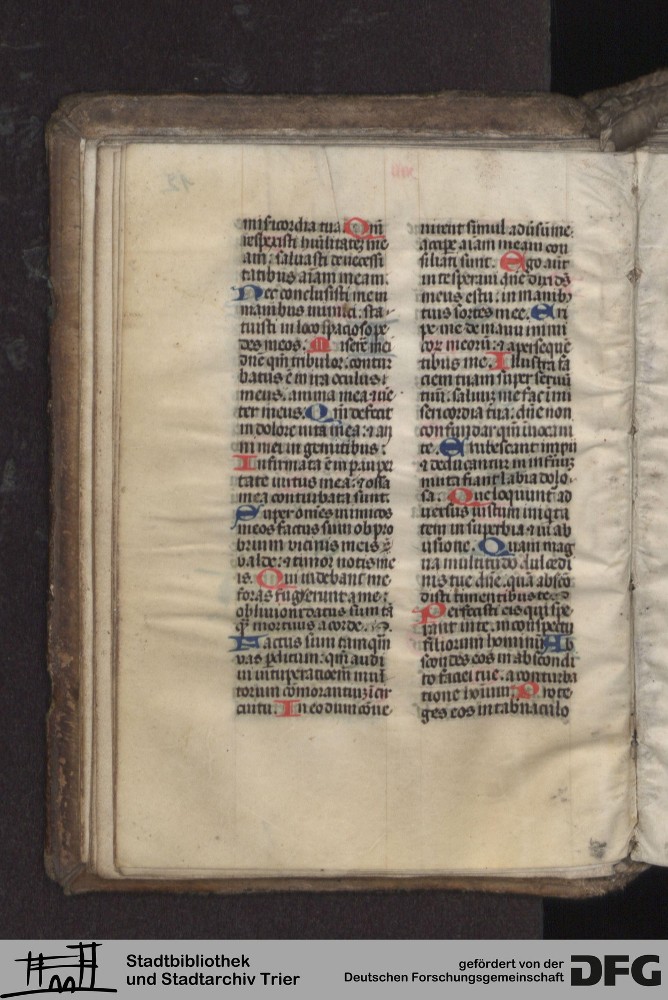 misericordia tua. Qm̄
respexisti hūilitatē me
am: saluasti de necessi
tatibus aīam meam.
Nec conclusisti me in
manibus inimici: sta
tuisti in loco spacioso pe
des meos. Miserē mei
dn̄e qm̄ tribulor: contur
batus ē in ira oculus
meus. anima mea et uē
ter meus. Qm̄ defecit
in dolore uita mea: et an
ni mei in gemitibus:
Infirmata ē in paup
tate uirtus mea: et ossa
mea conturbata sunt.
Super om̄es inimicos
meos factus sum obpro
brium et uicinis meis
ualde: et timor notis me
is. Qui uidebant me
foras fugierunt a me:
obliuioni datus sum tā
q̄ mortuus a corde.
Factus sum tamqm̄
uas pditum: qm̄ audi
ui uituperatioēm mul
torum cōmorantium in cir
cuitu. In eo dum cōue
nirent simul aduersum me:
accipe aīam meam con
siliati sunt. Ego aūt
in te speraui dn̄e dixi ds̄
meus es tu: in manib9
tuis sortes mee. Eri
pe me de manu inimi
cor meorū: et a persequē
tibus me. Illustra fa
ciem tuam super seruū
tuū: saluū me fac in mi
sericordia tua: dn̄e non
confundar qm̄ inuocaui
te. Erubescant impii
et deducantur in infernū:
muta fiant labia dolo
sa. Que loquunt ad
uersus iustum iniq̄ta
tem in superbia et in ab
usione. Quam mag
na multitudo dulcedi
nis tue dn̄e: quā abscō
disti timentibus te
Perfecisti eis qui spe
rant in te: in conspectu
filiorum hominū. Ab
scondes eos in abscondi
to faciei tue: a conturba
tione hoīnum. Prote
ges eos in tabnaculo
Stadtbibliothek
und Stadtarchiv Trier
gefördert von der
Deutschen Forschungsgemeinschaft
DFG